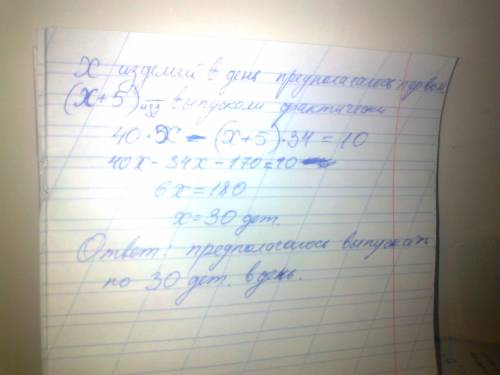 X изделий в день предполагалось первон
(x+5) изд выпускали фактически
40·x - (x+5)·34 = 10
40x - 34x - 170 = 10
6x = 180
x = 30 дет.
Ответ: предполагалось выпускать
по 30 дет. в день.